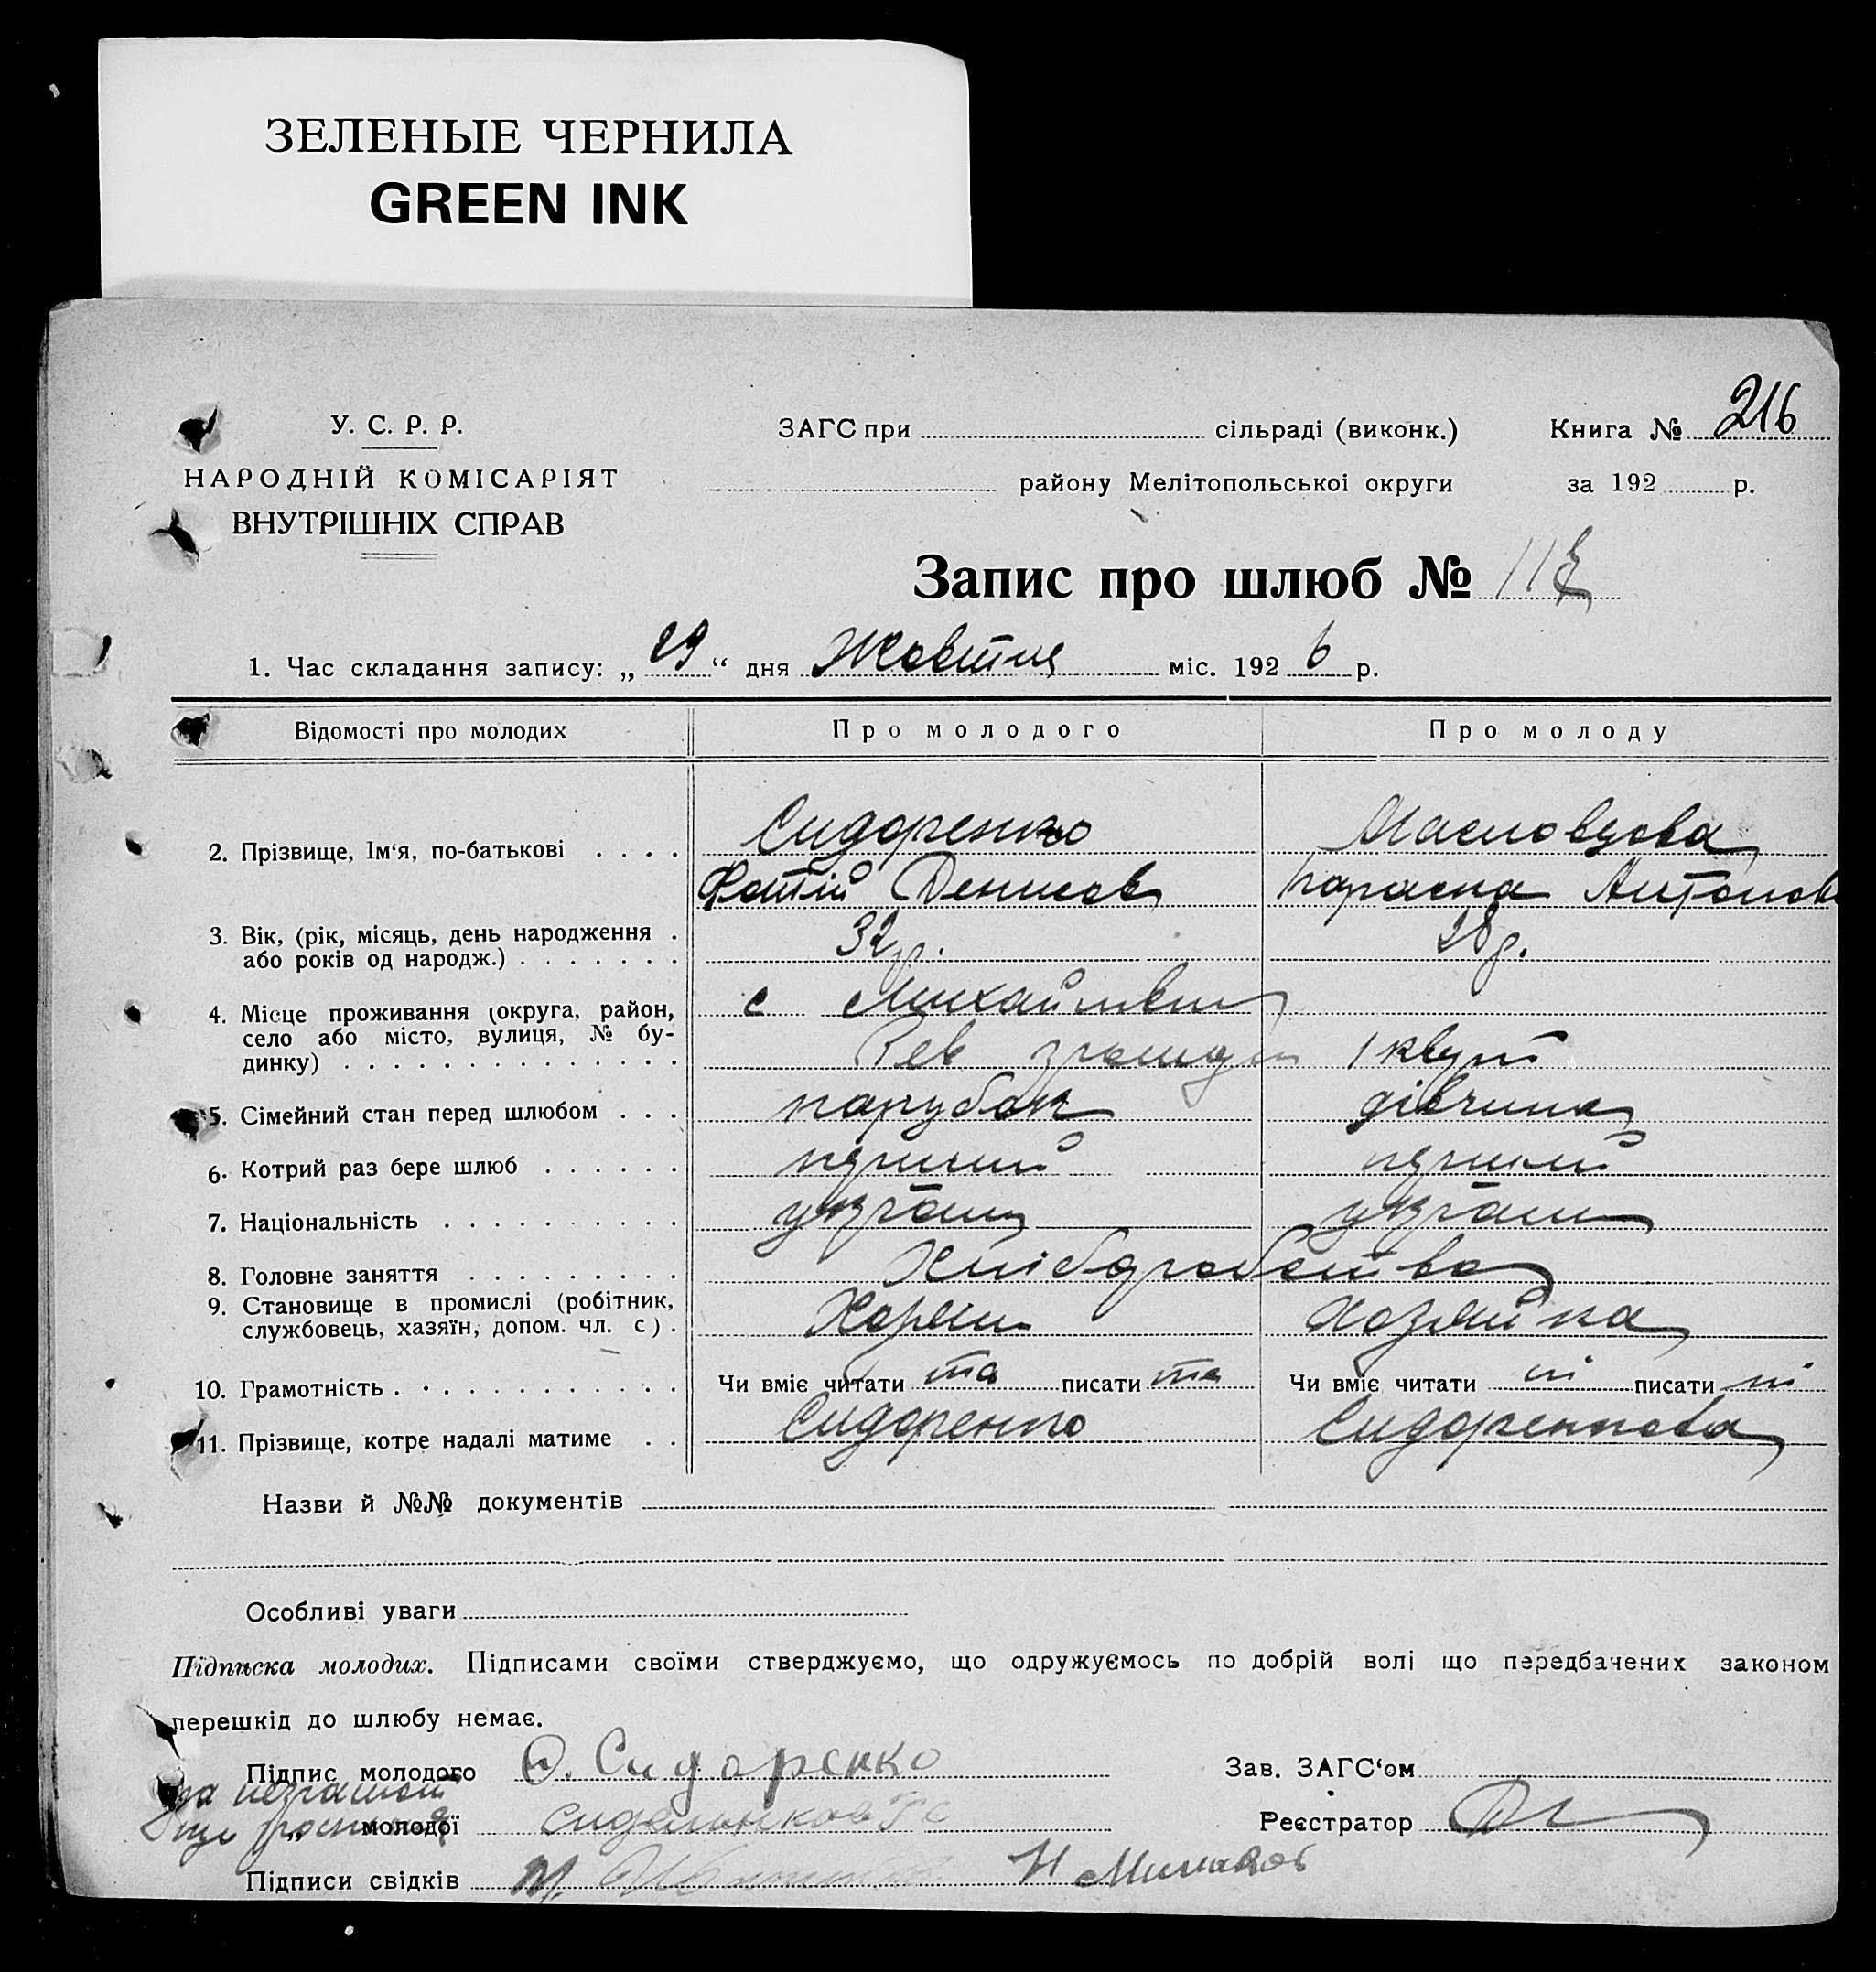 ЗЕЛЕНЫЕ ЧЕРНИЛА
GREEN INK
У. С. Р. Р.
НАРОДНІЙ КОМІСАРІЯТ
ВНУТРІШНІХ СПРАВ
ЗАГС при сільраді (виконк.)
району Мелітопольської округи
Книга № 216
за 192 р.
Запис про шлюб №
1. Час складання запису: „29“ дня Жовтня міс. 1926 р.
Відомості про молодих Про молодого Про молоду
2. Прізвище, Ім'я, по-батькові . . . . Сидоренко
Фотій Денисов Параска Антонов
3. Вік, (рік, місяць, день народження . 32 р. 28 р.
або років од народж.) . . . . . . .
4. Місце проживання (округа, район, с Михайлівка
село або місто, вулиця, № бу-
динку) . . . . . . . . . . . . . . Рев громада 1 кварт
5. Сімейний стан перед шлюбом . . . парубок дівчина
6. Котрий раз бере шлюб . . . . . . перший перший
7. Національність . . . . . . . . . . україн україн
8. Головне заняття . . . . . . . . . Хліборобство
9. Становище в промислі (робітник, Хозяйка
службовець, хазяїн, допом. чл. с ) .
10. Грамотність . . . . . . . . . . . . Чи вміє читати та писати та Чи вміє читати ні писати ні
11. Прізвище, котре надалі матиме . . Сидоренко Сидоренкова
Назви й №№ документів
Особливі уваги
Підписка молодих. Підписами своїми стверджуємо, що одружуємось по добрій волі що передбачених законом
перешкід до шлюбу немає.
Підпис молодого Ф. Сидоренко Зав. ЗАГС'ом
„ молодої Реєстратор
Підписи свідків